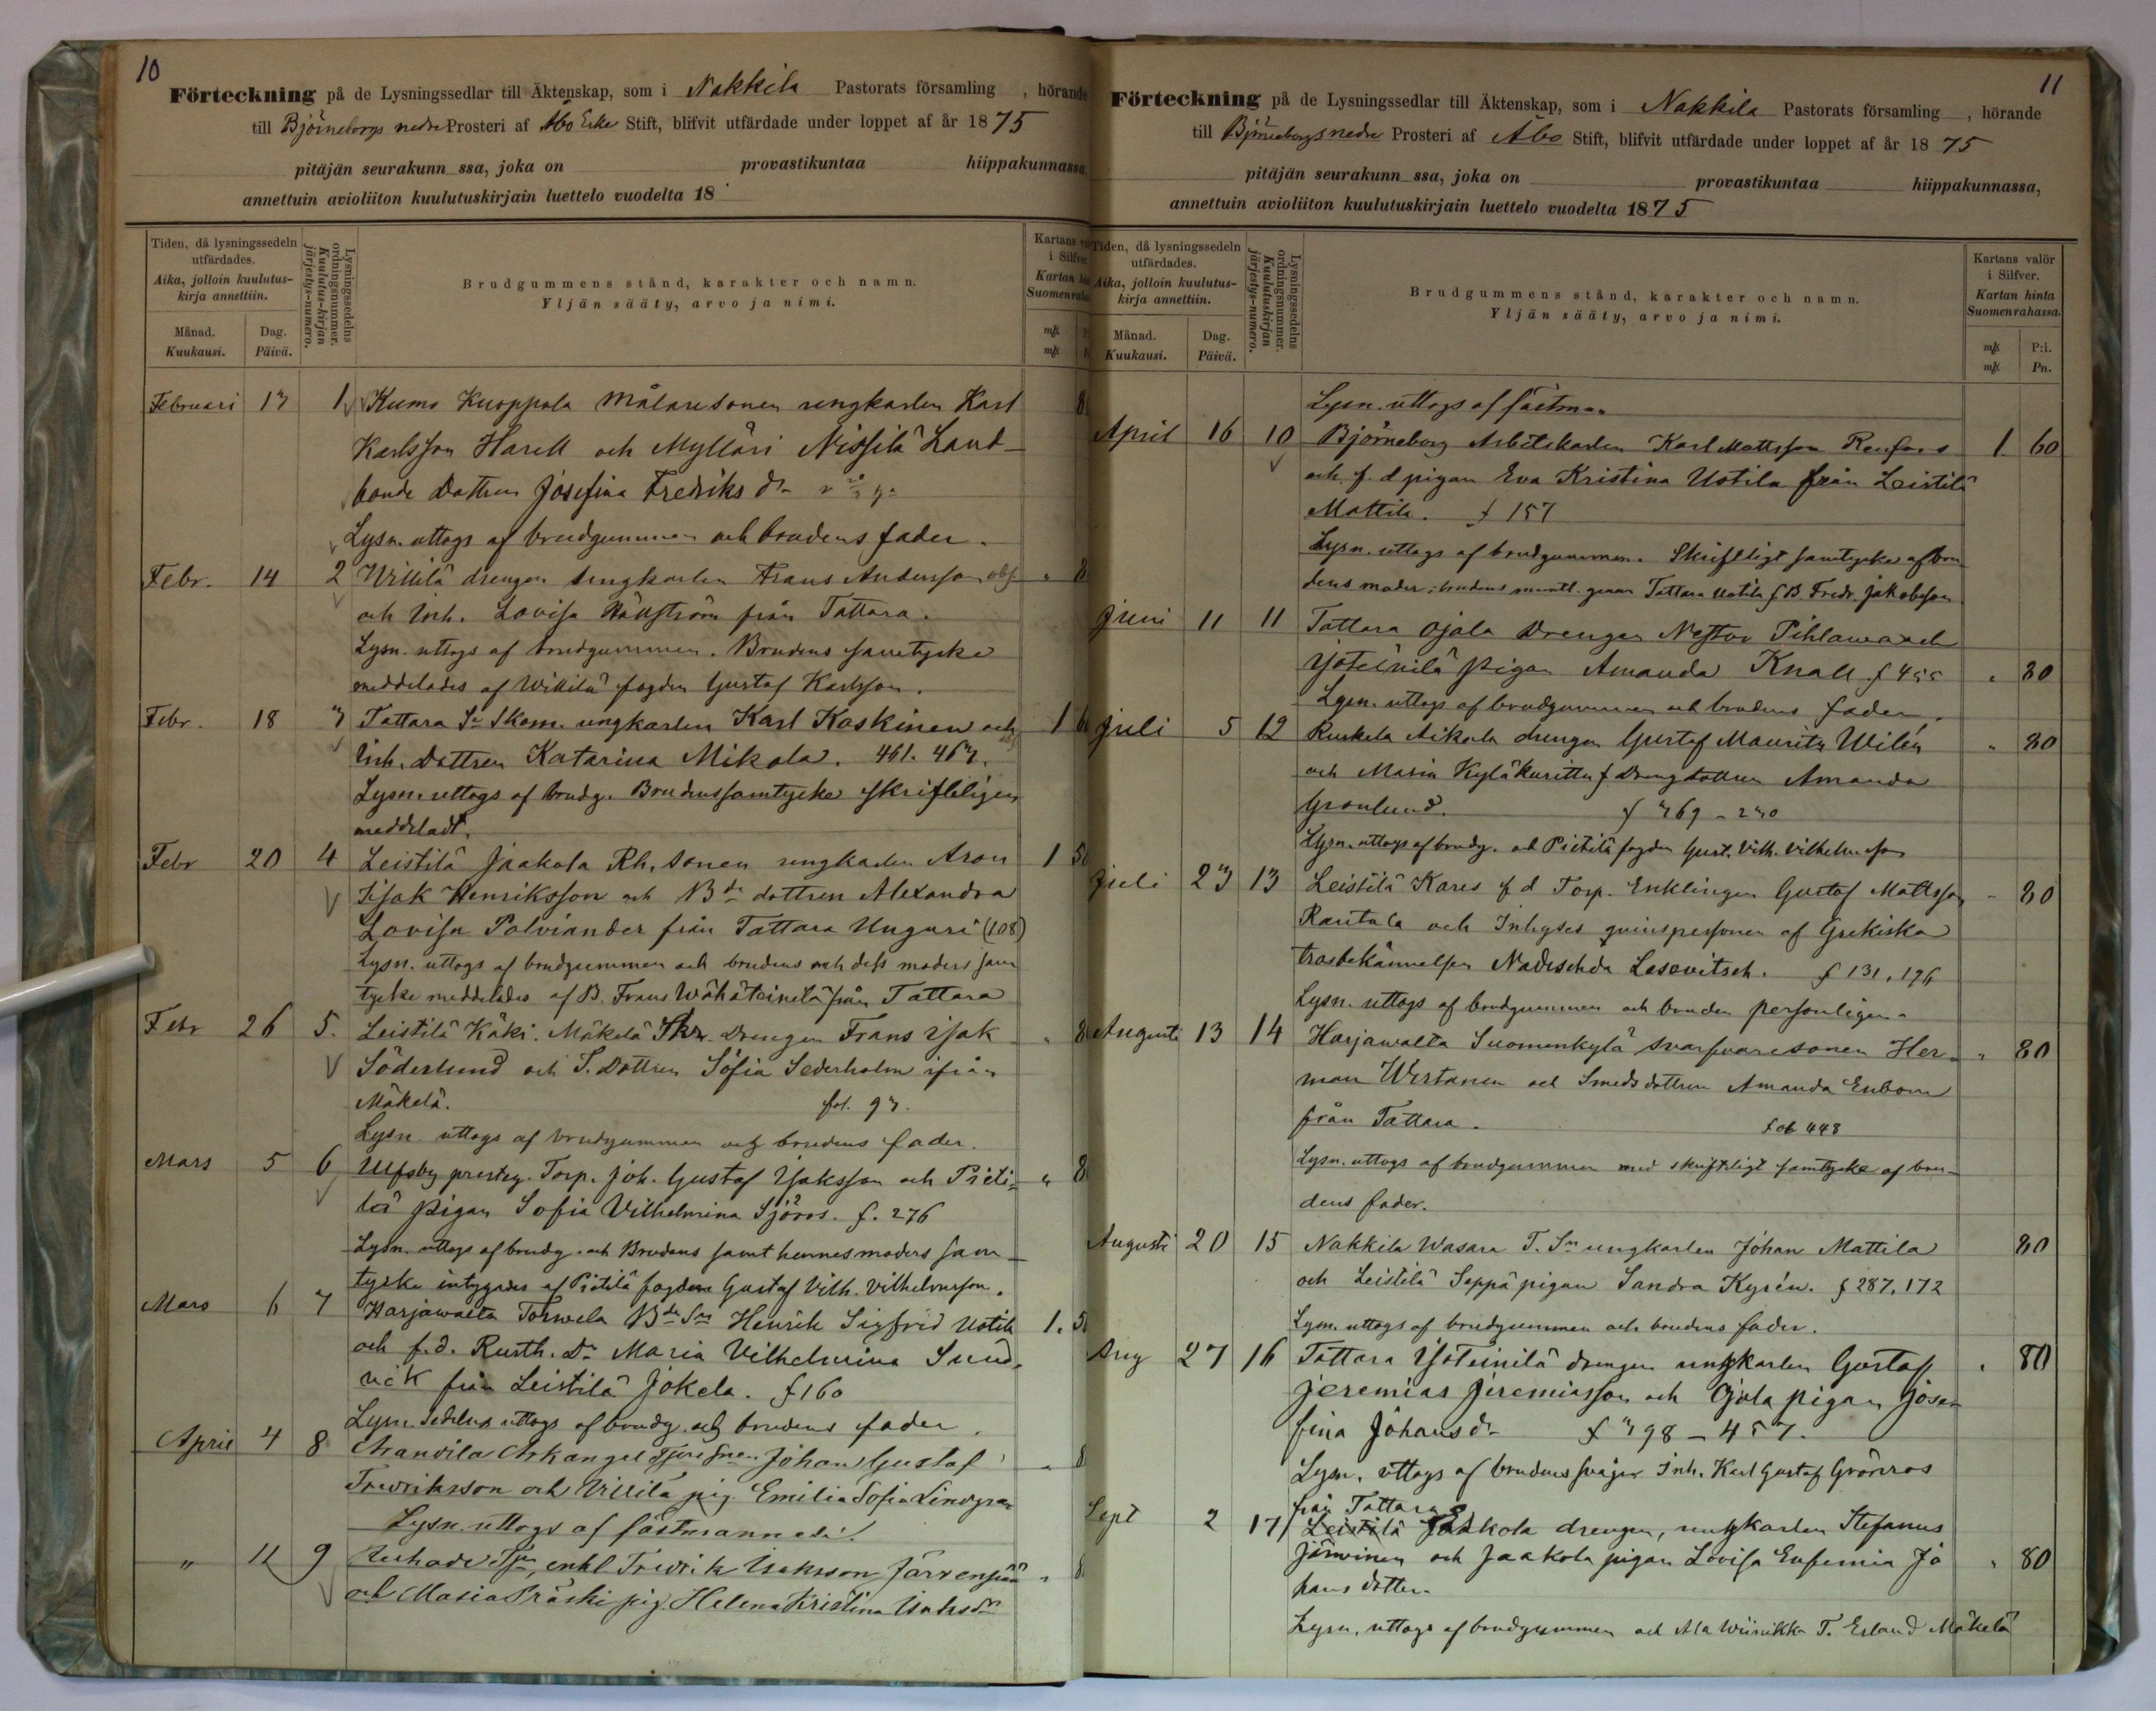 10
Förteckning på de Lysningssedlar till Äktenskap, som i Nakkila Pastorats församling , hörande
till Björneborgs nedre Prosteri af Åbo Erke Stift, blifvit utfärdade under loppet af år 1875
pitäjän seurakunn ssa, joka on provastikuntaa hiippakunnassa,
annettuin avioliiton kuulutuskirjain luettelo vuodelta 18
Tiden, då lysningssedeln utfärdades.
Aika, jolloin kuulutus-kirja annettiin.
Månad. Kuukausi.
Dag. Päivä.
Lysningssedelns ordningsnummer.
Kuulutus-kirjan järjestys-numero.
Brudgummens stånd, karakter och namn.
Yljän sääty, arvo ja nimi.
Kartans
i Silfver
Kartan
Suomenraha
mk
mk
Februari 13 1 Kumo Kuoppala Målaresonen ungkarlen Karl 8
Karlsson Harell och Mylläri Nissilä Land-
bonde Dottren Josefina Fredriks dr
Lysn. uttogs af brudgummen och brudens fader.
Febr. 14 2 Willilä drengen ungkarlen Frans Andersson " 8
och Inh. Lovisa Hällström från Tattara.
Lysn. uttogs af brudgummen. Brudens samtycke
meddelades af Willilä fogden Gustaf Karlsson.
Febr. 18 3 Tattara Sn Skom. ungkarlen Karl Koskinen och 1 6
Inh. Dottren Katarina Mikola. 461. 463.
Lysn. uttogs af brudg. Brudens samtycke skriftligen
meddeladt.
Febr 20 4 Leistilä Jaakola Rh. sonen ungkarlen Aron 1 50
Isak Henriksson och Bde dottren Alexandra
Lovisa Palviander från Tattara Unguri (108)
Lysn. uttogs af brudgummen och brudens och dess moders sam
tycke meddelades af B. Frans Wähäteinilä från Tattara
Febr 26 5. Leistilä Käki. Mäkelä Skr. Drengen Frans Isak " 8
Söderlund och S. Dottren Sofia Sederholm ifrån
Mäkelä. fol. 93.
Lysn uttogs af brudgummen och brudens fader.
Mars 5 6 Ulfsby presteg. Torp. Joh. Gustaf Isaksson och Pieti- " 8
lä pigan Sofia Vilhelmina Sjöros. f. 276
Lysn. uttogs af brudg. och Brudens samt hennes moders sam-
tycke intygades af Pietilä fogden Gustaf Vilh. Vilhelmsson.
Mars 6 7 Harjawalta Torwela Bde Sn Henrik Sigfrid Uotila 1. 5
och f.d. Rusth. Dr Maria Vilhelmina Sund-
vik från Leistilä Jokela. f 160
Lysn. Sedeln uttogs af brudg. och brudens fader.
April 4 8 Anavila Arkangel Johan Gustaf " 8
Fredriksson och Villilä pig. Emilia Sofia Lindgren
Lysn. uttogs af fästmannen!
" 11 9 enkl. Fredrik Isaksson Järvenpää " 8
och Masia Präski pig. Helena Kristina Isaksdr
11
Förteckning på de Lysningssedlar till Äktenskap, som i Nakkila Pastorats församling , hörande
till Björneborgs nedre Prosteri af Åbo Stift, blifvit utfärdade under loppet af år 1875
pitäjän seurakunn ssa, joka on provastikuntaa hiippakunnassa,
annettuin avioliiton kuulutuskirjain luettelo vuodelta 1875
Tiden, då lysningssedeln utfärdades.
Aika, jolloin kuulutus-kirja annettiin.
Månad. Kuukausi.
Dag. Päivä.
Lysningssedelns ordningsnummer.
Kuulutuskirjan järjestys-numero.
Brudgummens stånd, karakter och namn.
Yljän sääty, arvo ja nimi.
Kartans valör
i Silfver.
Kartan hinta
Suomenrahassa.
mk P:i.
mk Pn.
Lysn. uttogs af fästman
April 16 10 Björneborg Arbetskarlen Karl Mattsson Renfors 1. 60
och f. d pigan Eva Kristina Uotila från Leistilä
Mattila. f 157
Lysn. uttogs af brudgummen. Skriftligt samtycke af bru
dens moder; brudens muntl. genom Tattara Uotila f.B. Fredr. Jakobsson
Juni 11 11 Tattara Ojala Drengen Nestor Pihlawa och
Ysoteinilä pigan Amanda Knall f 455 " 80
Lysn. uttogs af brudgummen och brudens fader.
Juli 5 12 Ruskela Aikala drengen Gustaf Maurits Wilén " 80
och Masia Kyläkurittu f. Drengdottren Amanda
Grönlund. f 369 - 230
Lysn. uttogs af brudg. och Pietilä fogden Gust. Vilh. Vilhelmsson
Juli 23 13 Leistilä Kares f d Torp. Enklingen Gustaf Mattsson - 80
Rantala och Inhyses qvinspersonen af Grekiska
trosbekännelsen Nadeschda Lesovitsch. f 131, 196
Lysn. uttogs af brudgummen och bruden personligen.
Augusti 13 14 Harjawalta Suomenkylä svarfvaresonen Her- " 80
man Wirtanen och Smedsdottren Amanda Enbom
från Tattara. fol 448
Lysn. uttogs af brudgummen med skriftligt samtycke af bru-
dens fader.
Augusti 20 15 Nakkila Wasara T. Sn ungkarlen Johan Mattila 80
och Leistilä Seppä pigan Sandra Kyrén. f 287, 172
Lysn. uttogs af brudgummen och brudens fader.
Aug 27 16 Tattara Isoteinilä drengen ungkarlen Gustaf " 80
Jeremias Jeremiasson och Ojala pigan Jose-
fina Johansdr f 398 - 457.
Lysn. uttogs af brudens svåger Inh. Karl Gustaf Grönroos
från Tattara
Sept 2 17 Leistilä Jaakola drengen, ungkarlen Stefanus
Järvinen och Jaakola pigan Lovisa Eufemia Jo " 80
hansdotter
Lysn. uttogs af brudgummen och Ala Wiinikka T. Erland Mäkelä